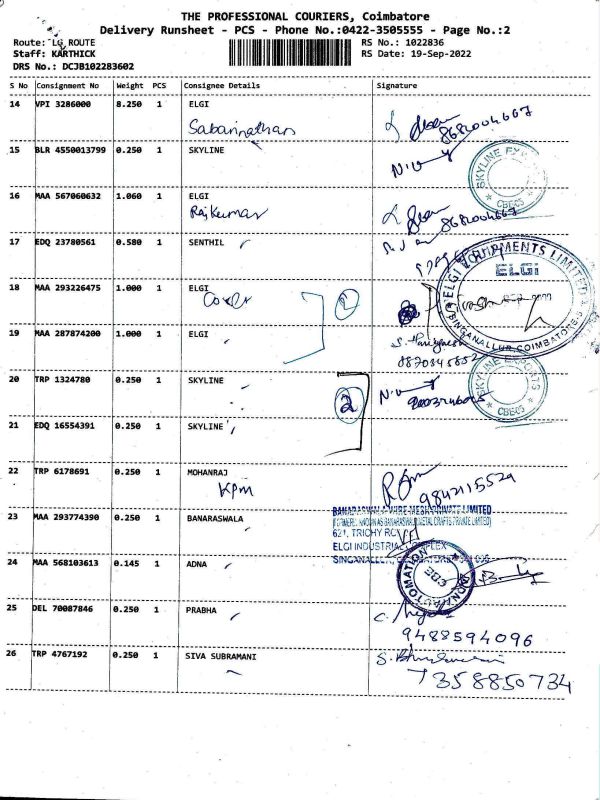 THE PROFESSIONAL COURIERS, Coimbatore
Delivery Runsheet - PCS - Phone No.:0422-3505555 - Page No.:2
Route: LG ROUTE
RS No.: 1022836
Staff: KARTHICK
RS Date: 19-Sep-2022
DRS No.: DCJB102283602
S No Consignment No Weight PCS Consignee Details Signature
14 VPI 3286000 8.250 1 ELGI
Sabarinathan
8681004667
15 BLR 4550013799 0.250 1 SKYLINE
SKYLINE EXPORTS
CBE-05
16 MAA 567060632 1.060 1 ELGI
Rajkumar
8681004667
17 EDQ 23780561 0.580 1 SENTHIL
ELGI EQUIPMENTS LIMITED
ELGI
SINGANALLUR, COIMBATORE-5
18 MAA 293226475 1.000 1 ELGI
2
19 MAA 287874200 1.000 1 ELGI
20 TRP 1324780 0.250 1 SKYLINE
SKYLINE EXPORTS
CBE-05
2
21 EDQ 16554391 0.250 1 SKYLINE
22 TRP 6178691 0.250 1 MOHANRAJ
KPM
9842115529
23 MAA 293774390 0.250 1 BANARASWALA
621, TRICHY ROAD
ELGI INDUSTRIAL COMPLEX
24 MAA 568103613 0.145 1 ADNA
25 DEL 70087846 0.250 1 PRABHA
9488594096
26 TRP 4767192 0.250 1 SIVA SUBRAMANI
7358850734